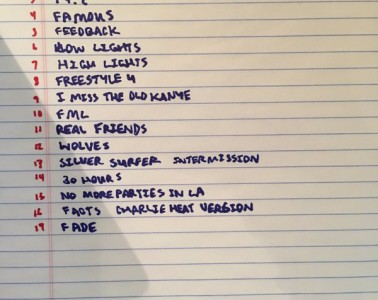 3 PT. 2
4 FAMOUS
5 FEEDBACK
6 LOW LIGHTS
7 HIGH LIGHTS
8 FREESTYLE 4
9 I MISS THE OLD KANYE
10 FML
11 REAL FRIENDS
12 WOLVES
13 SILVER SURFER INTERMISSION
14 30 HOURS
15 NO MORE PARTIES IN LA
16 FACTS CHARLIE HEAT VERSION
17 FADE